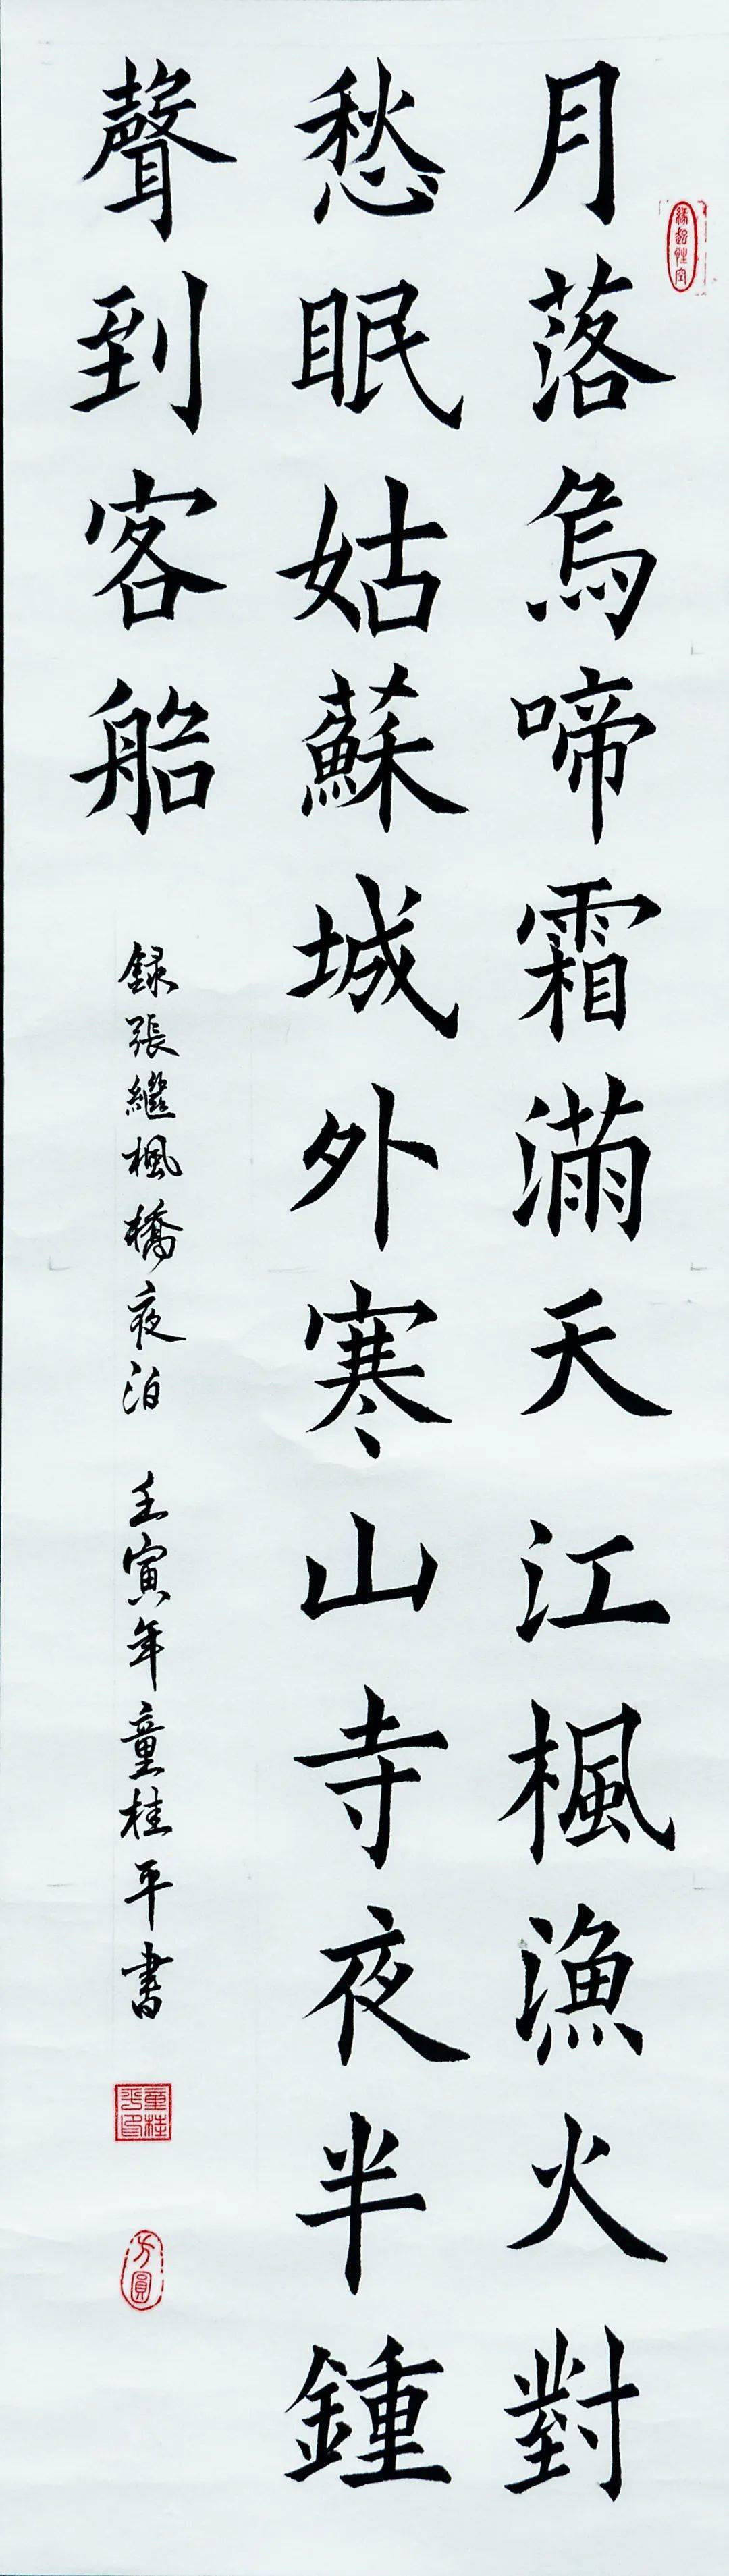 月落烏啼霜滿天江楓漁火對
愁眠姑蘇城外寒山寺夜半鍾
聲到客船
録張繼楓橋夜泊 壬寅年童桂平書
童桂平印
方圓